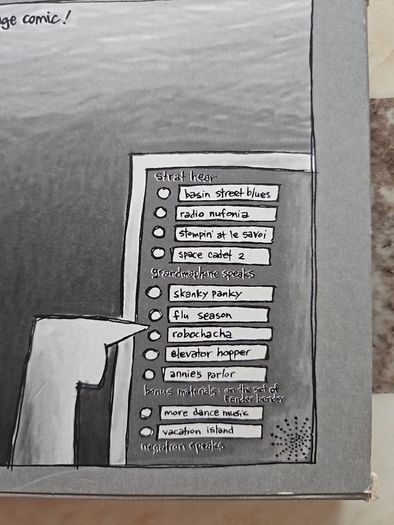 ge comic!
strat hear
basin street blues
radio nufonia
stompin' at le savoi
space cadet 2
grandmophone speaks
skanky panky
flu season
robochacha
elevator hopper
annies parlor
bonus materials: on the set of
fender bender
more dance music
vacation island
negatron speaks